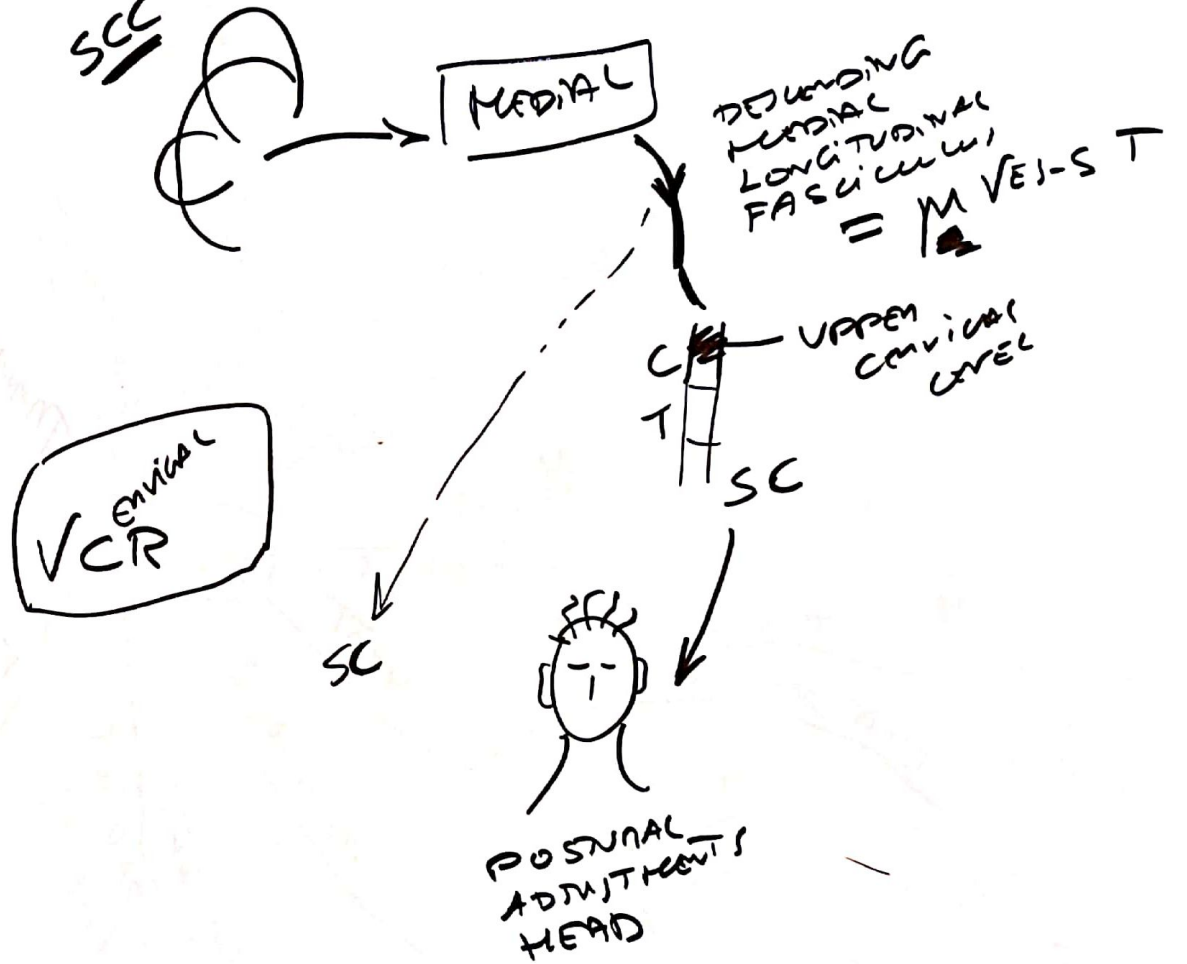 SCC
MEDIAL
DESCENDING
MEDIAL
LONGITUDINAL
FASCICULUS
= M VES-S T
C
UPPER
CERVICAL
LEVEL
T
SC
CERVICAL
VCR
SC
POSTURAL
ADJUSTMENTS
HEAD